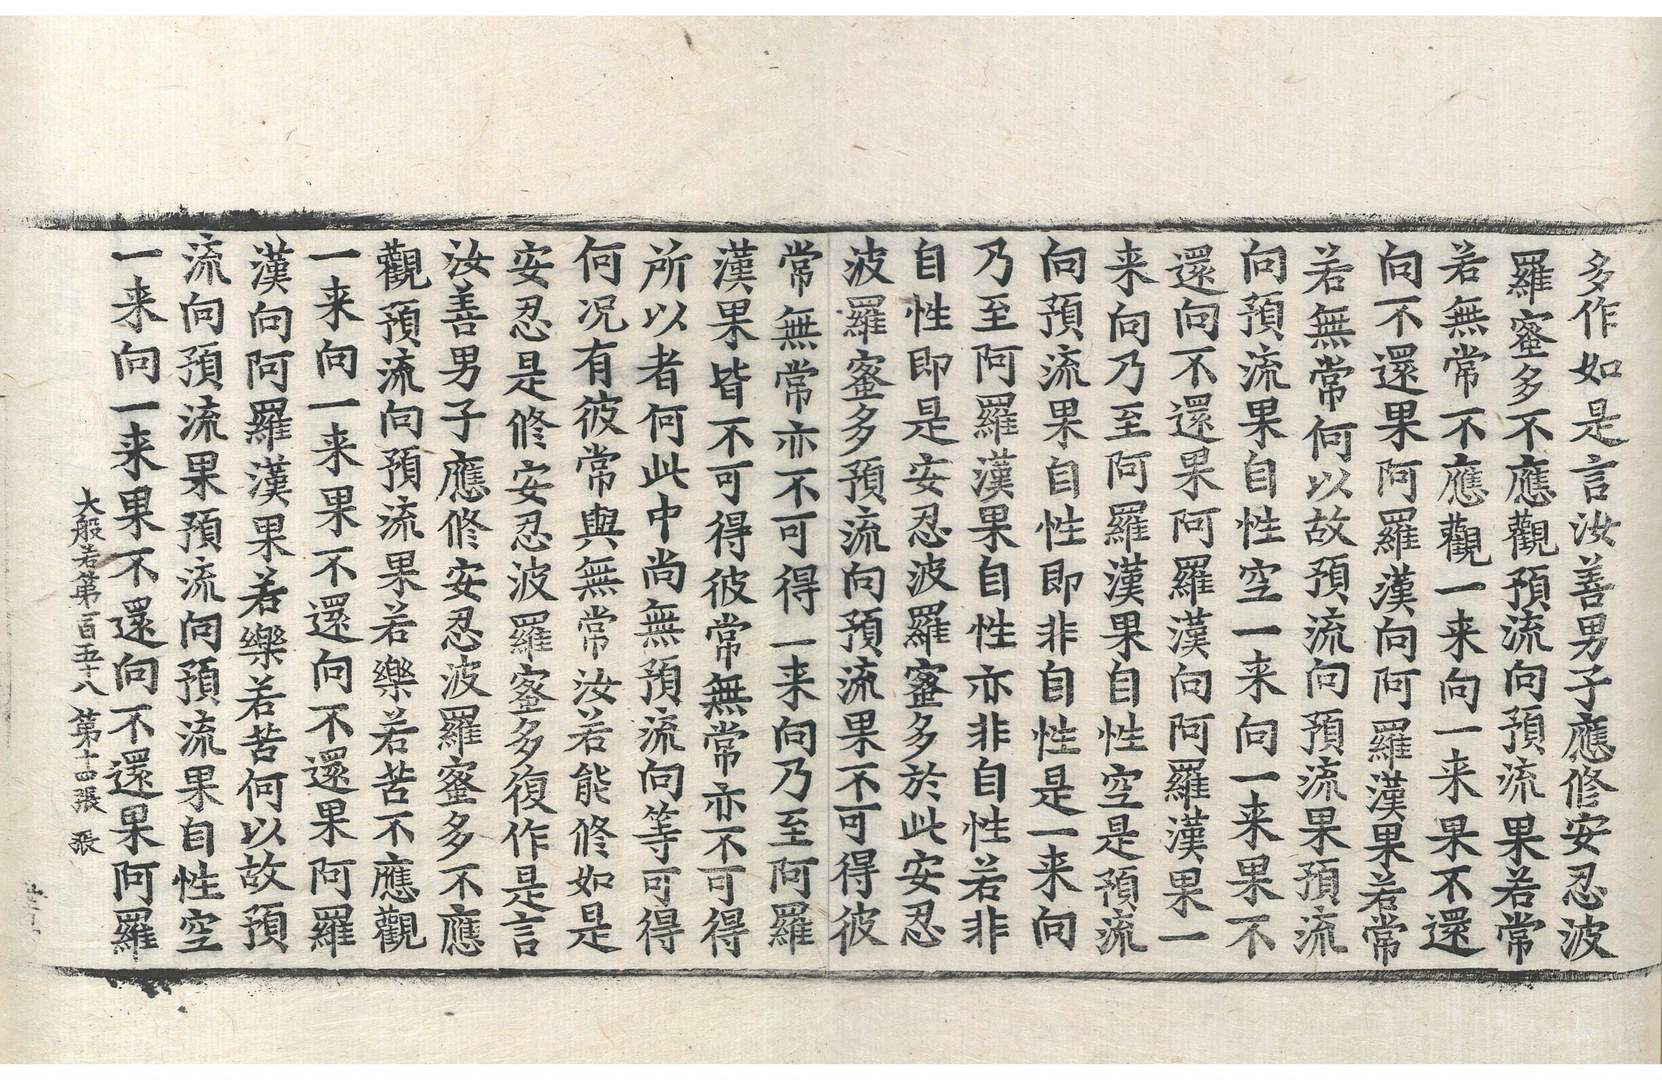 多作如是言汝善男子應修安忍波
羅蜜多不應觀預流向預流果若常
若無常不應觀一来向一来果不還
向不還果阿羅漢向阿羅漢果若常
若無常何以故預流向預流果預流
向預流果自性空一来向一来果不
還向不還果阿羅漢向阿羅漢果一
来向乃至阿羅漢果自性空是預流
向預流果自性即非自性是一来向
乃至阿羅漢果自性亦非自性若非
自性即是安忍波羅蜜多於此安忍
波羅蜜多預流向預流果不可得彼
常無常亦不可得一来向乃至阿羅
漢果皆不可得彼常無常亦不可得
所以者何此中尚無預流向等可得
何况有彼常與無常汝若能修如是
安忍是修安忍波羅蜜多復作是言
汝善男子應修安忍波羅蜜多不應
觀預流向預流果若樂若苦不應觀
一来向一来果不還向不還果阿羅
漢向阿羅漢果若樂若苦何以故預
流向預流果預流向預流果自性空
一来向一来果不還向不還果阿羅
大般若第一百五十八 第十四張 張